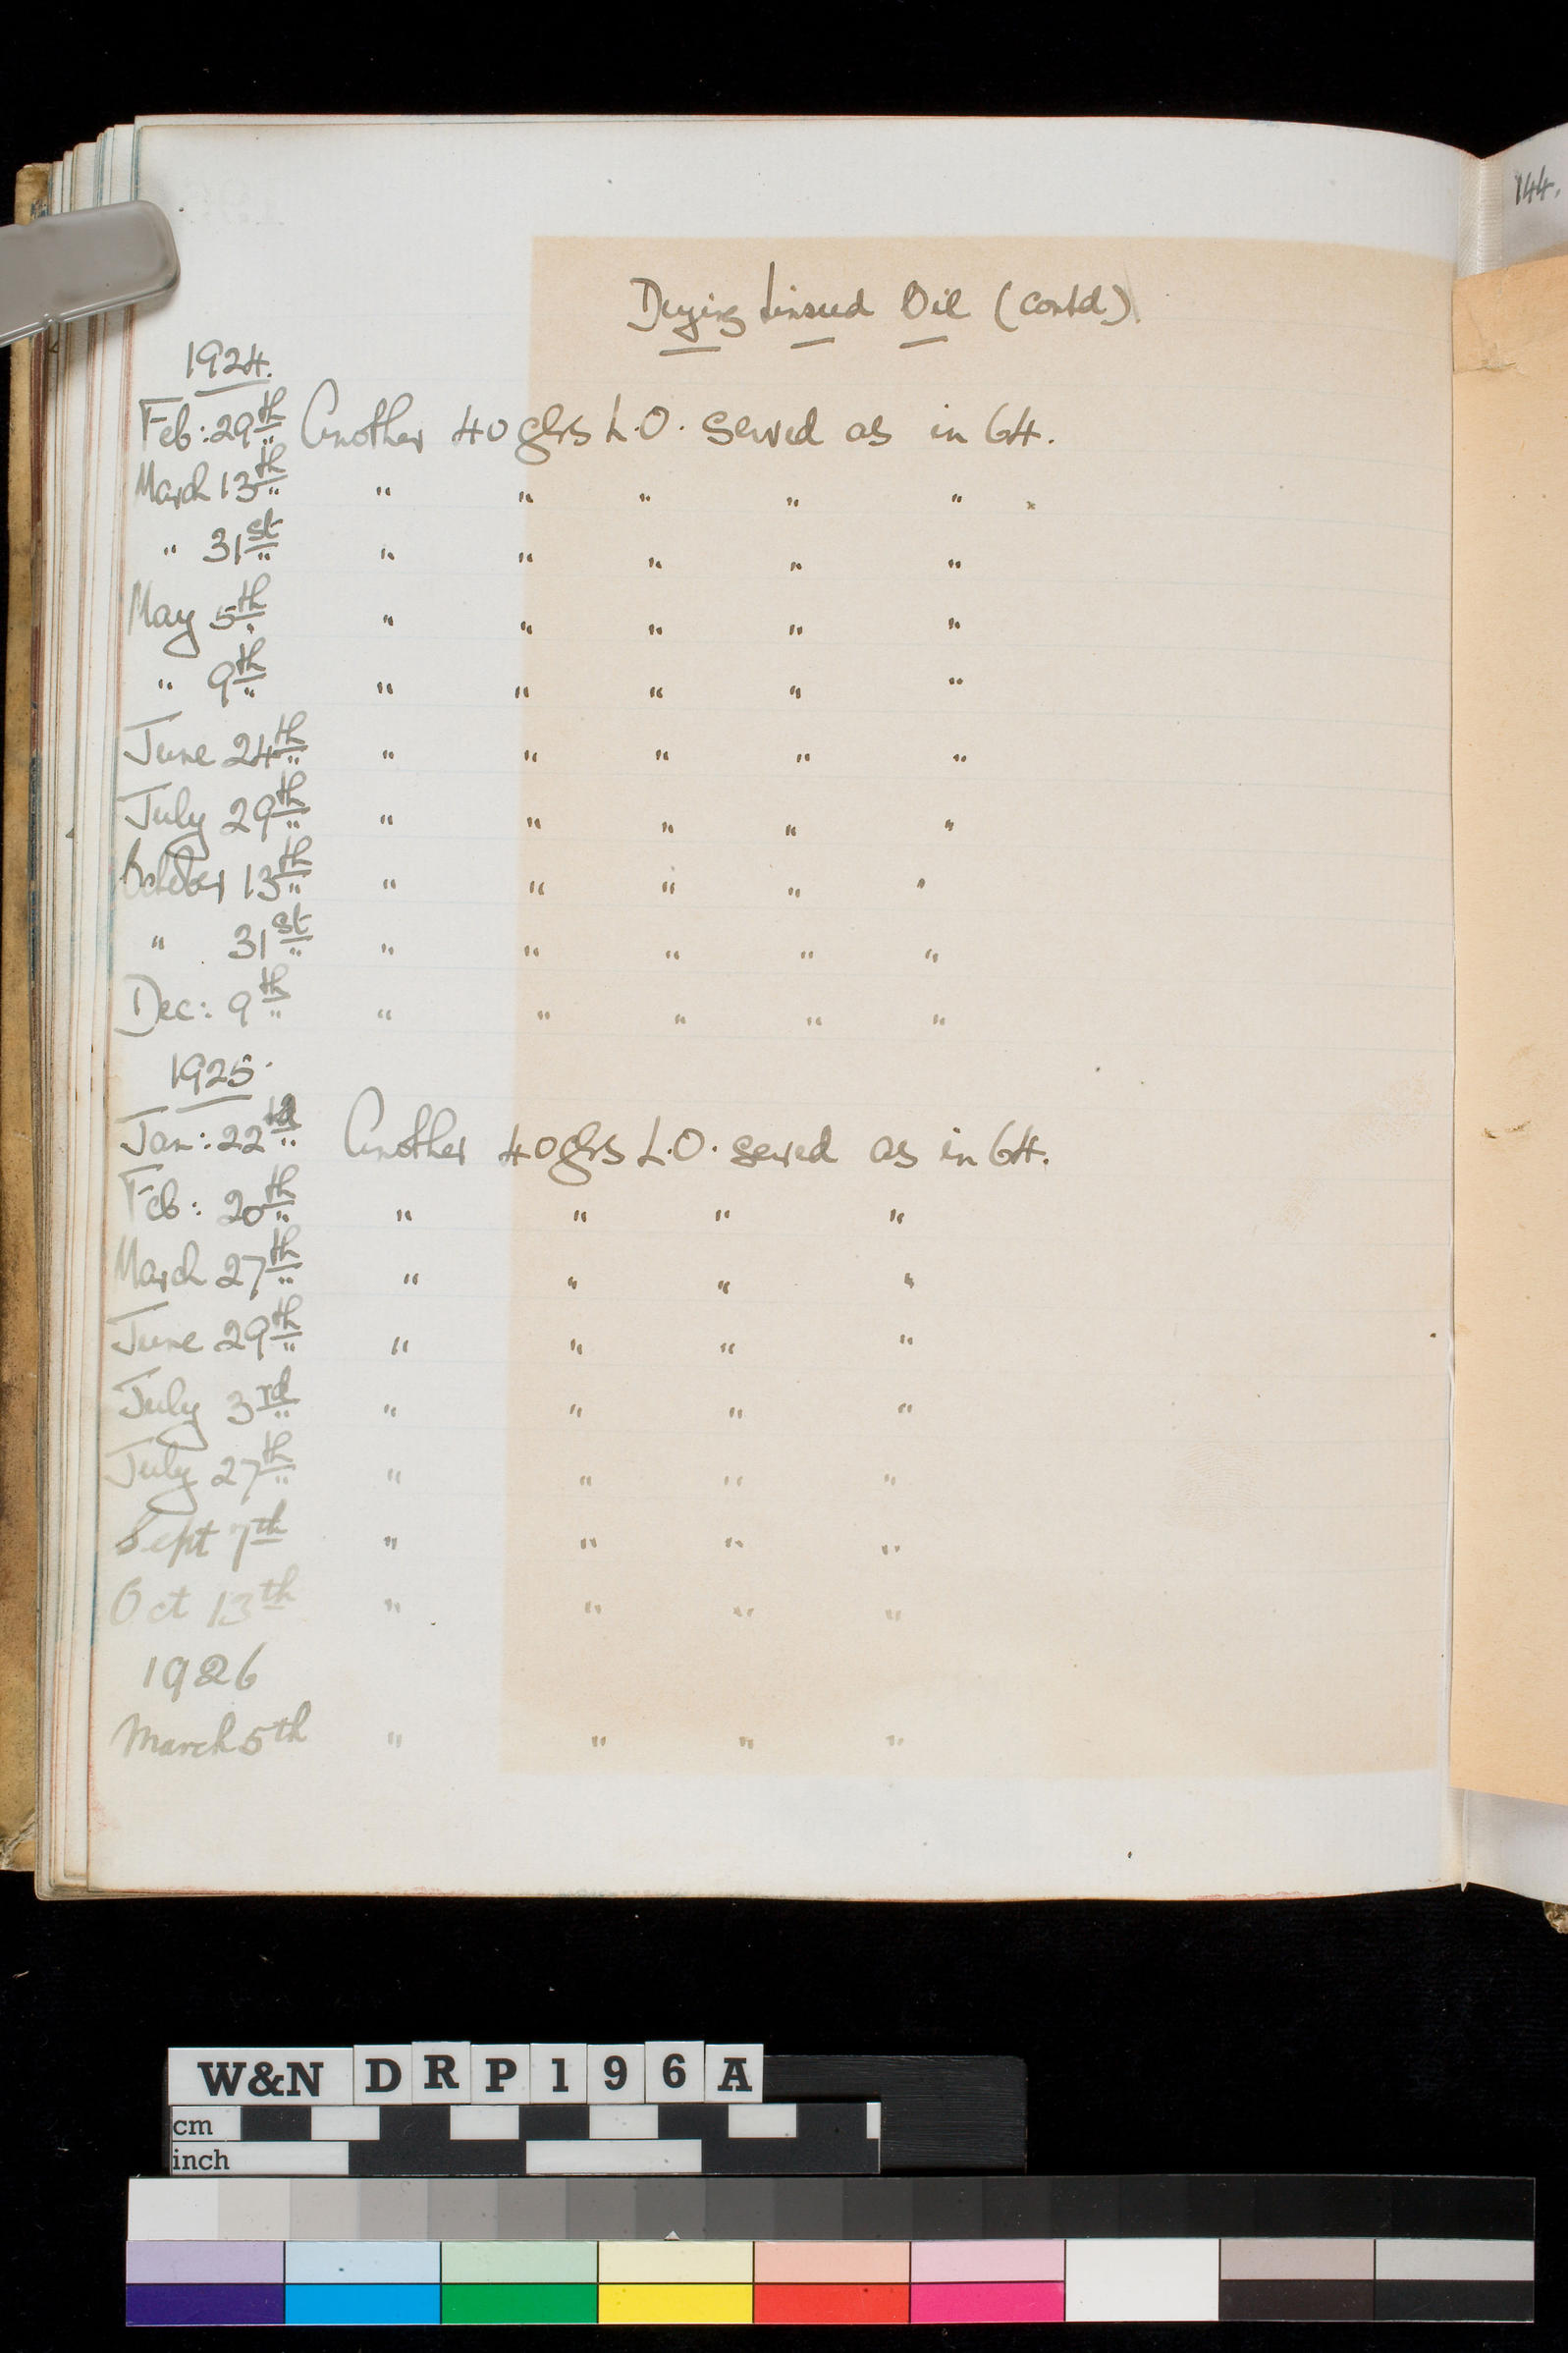 144.
Drying Linseed Oil (contd).
1924.
Feb: 29th Another 40 glls L.O. served as in 64.
March 13th " " " " "
" 31st " " " " "
May 5th " " " " "
" 9th " " " " "
June 24th " " " " "
July 29th " " " " "
October 13th " " " " "
" 31st " " " " "
Dec: 9th " " " " "
1925.
Jan: 22nd Another 40 glls L.O. served as in 64.
Feb: 20th " " " "
March 27th " " " "
June 29th " " " "
July 3rd " " " "
July 27th " " " "
Sept 7th " " " "
Oct 13th " " " "
1926
March 5th " " " "
W&N DRP196A
cm
inch